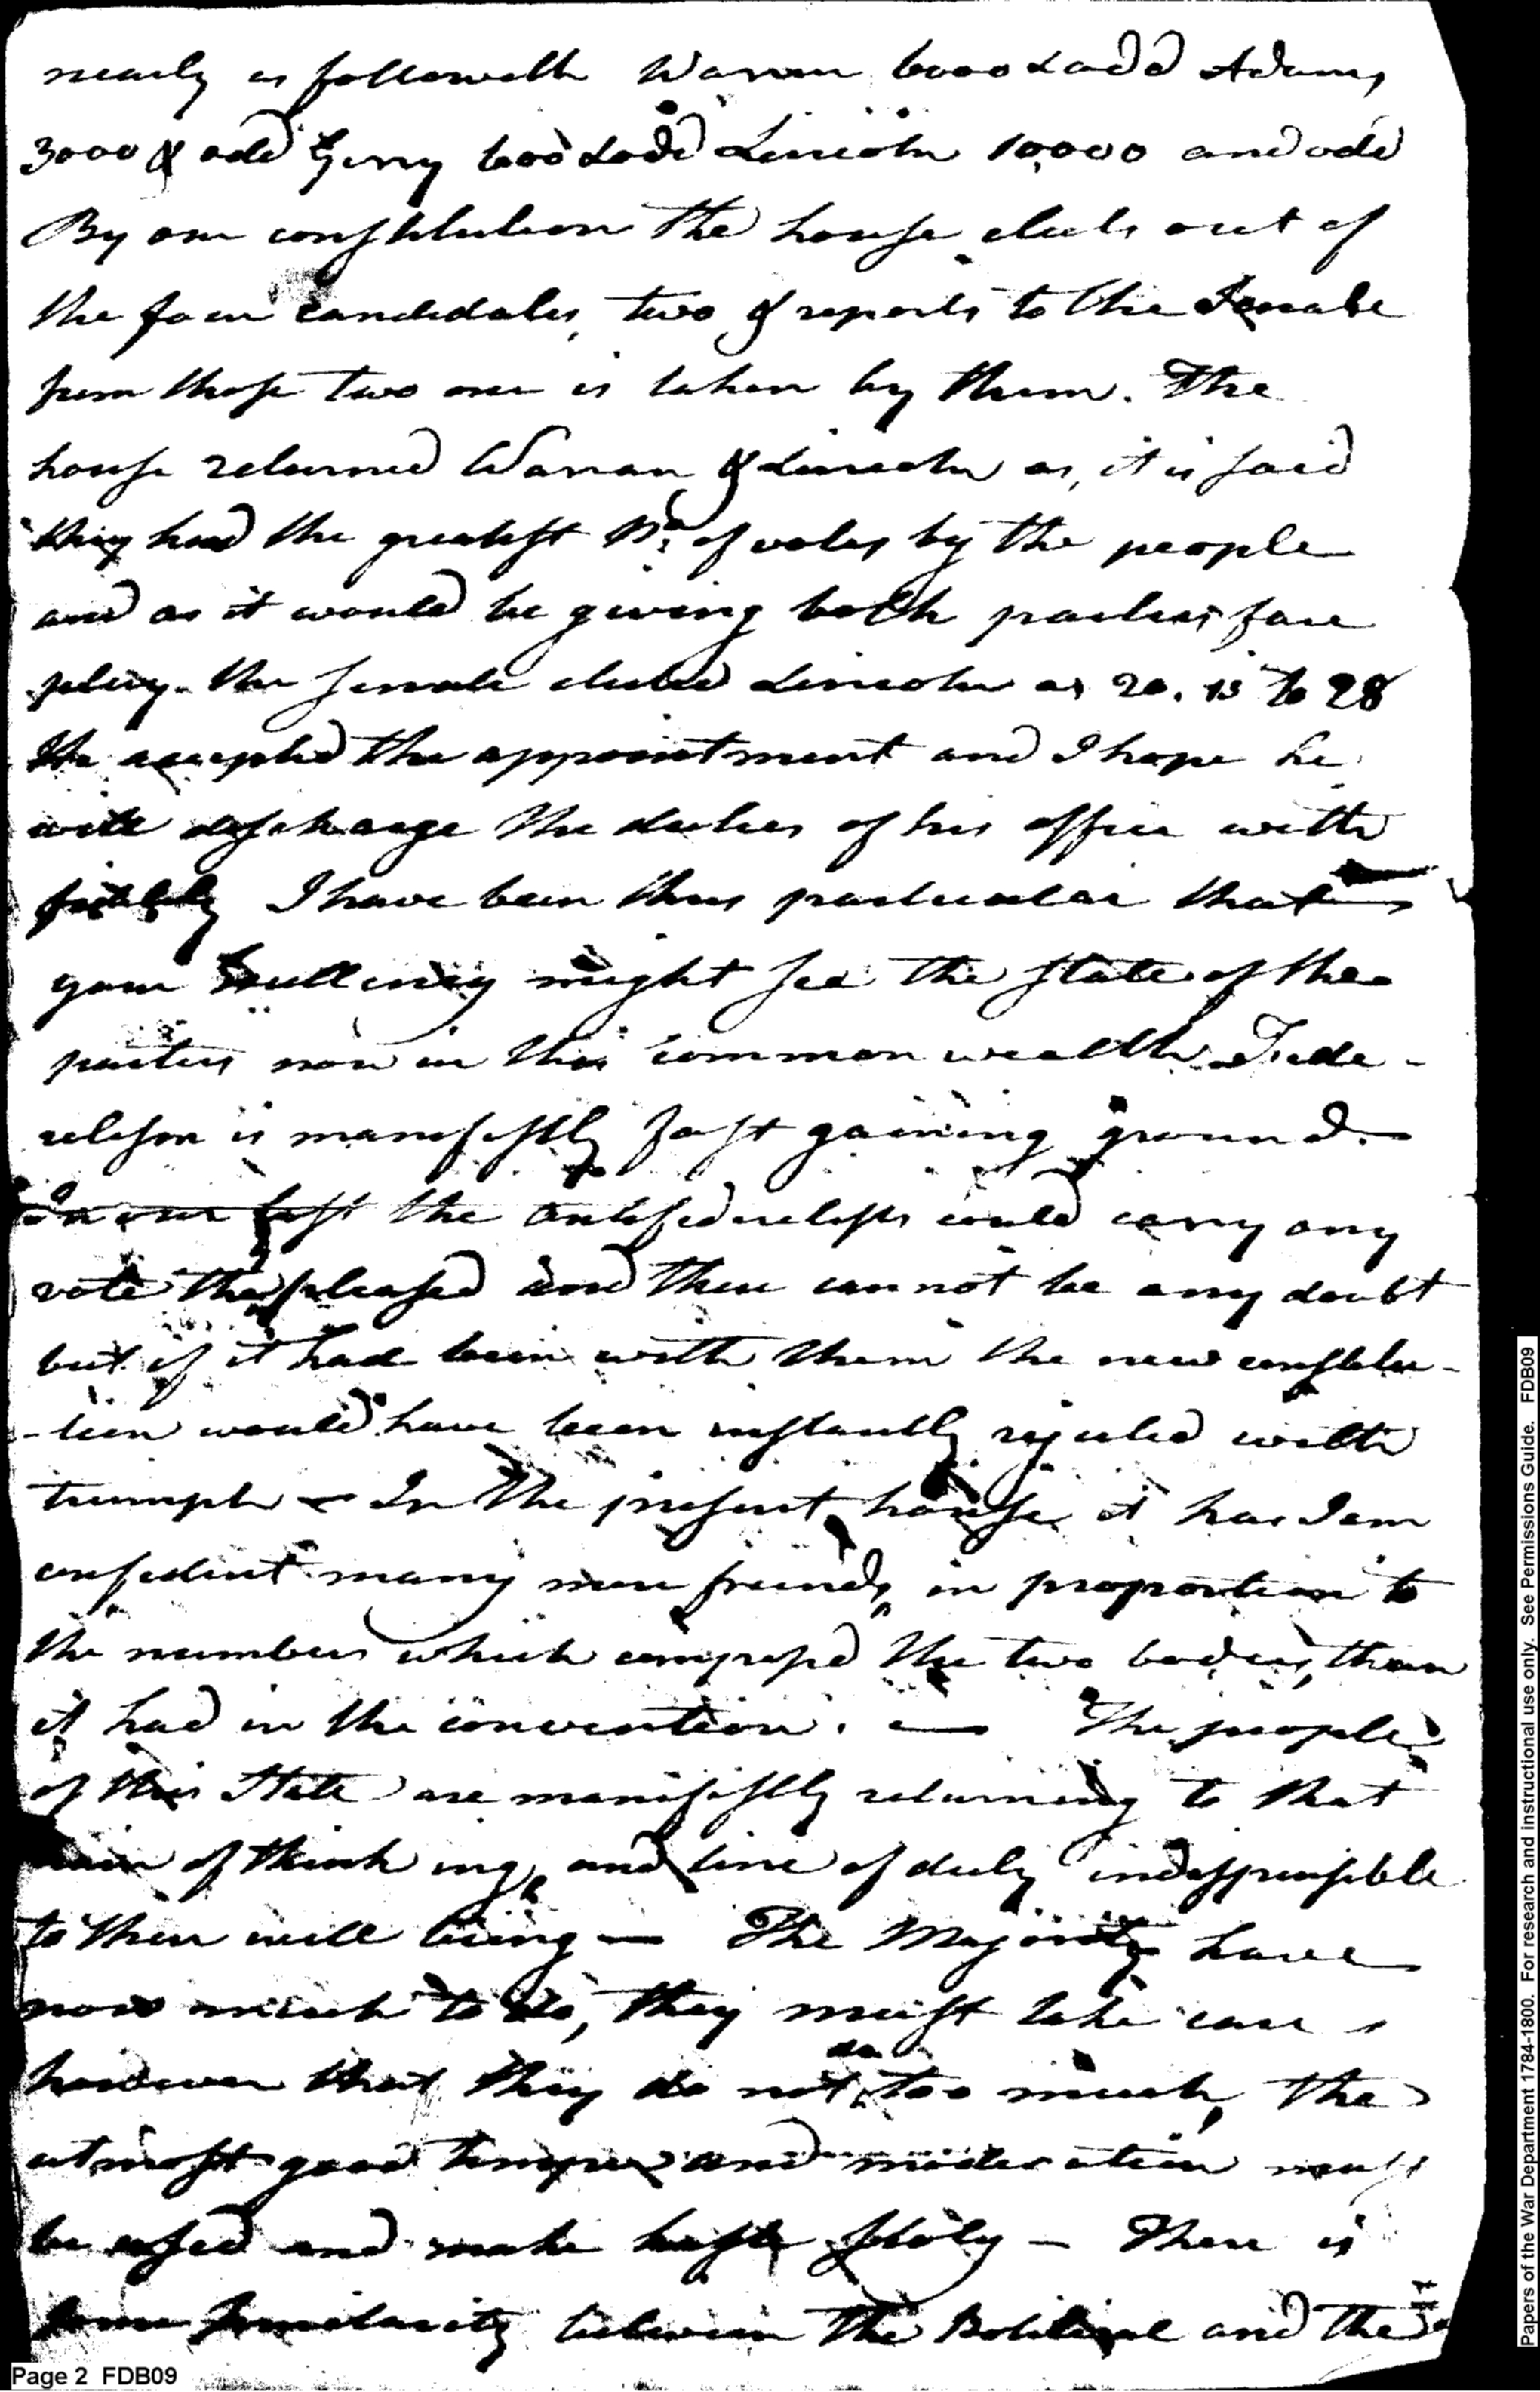 nearly as followeth Warren 6000 & add Adams
3000 & odd Gerry 600 & odd Lincoln 10,000 and odd
By our constitution the house elects out of
the four candidates, two & reports to the Senate
from those two one is taken by them. The
house returned Warran & Lincoln as, it is said
they had the greatest No. of votes by the people
and as it would be giving both parties fare
play. the senate elected Lincoln as 20. is to 28
He accepted the appointment and I hope he
will discharge the duties of his office with
fidelity I have been thus particular that
your Excellency might see the state of the
parties now in this common wealth Fede-
ralism is manifestly fast gaining ground.
In our last the antifederalists could carry any
vote they pleased and there cannot be any doubt
but if it had been with them the new constitu-
-tion would have been instantly rejected with
triumph — In the present house it has I am
confident many more friends, in proportion to
the numbers which composed the two bodies, than
it had in the convention. — The people
of this State are manifestly returning to that
of think ing, and line of duty indispensible
to their well being — The Majority have
now much to do, they must take care
however that they do not do too much, the
utmost good temper and moderation must
be used and make haste slowly — There is
some similarity between the Political and the
Page 2 FDB09
Papers of the War Department 1784-1800. For research and instructional use only. See Permissions Guide. FDB09